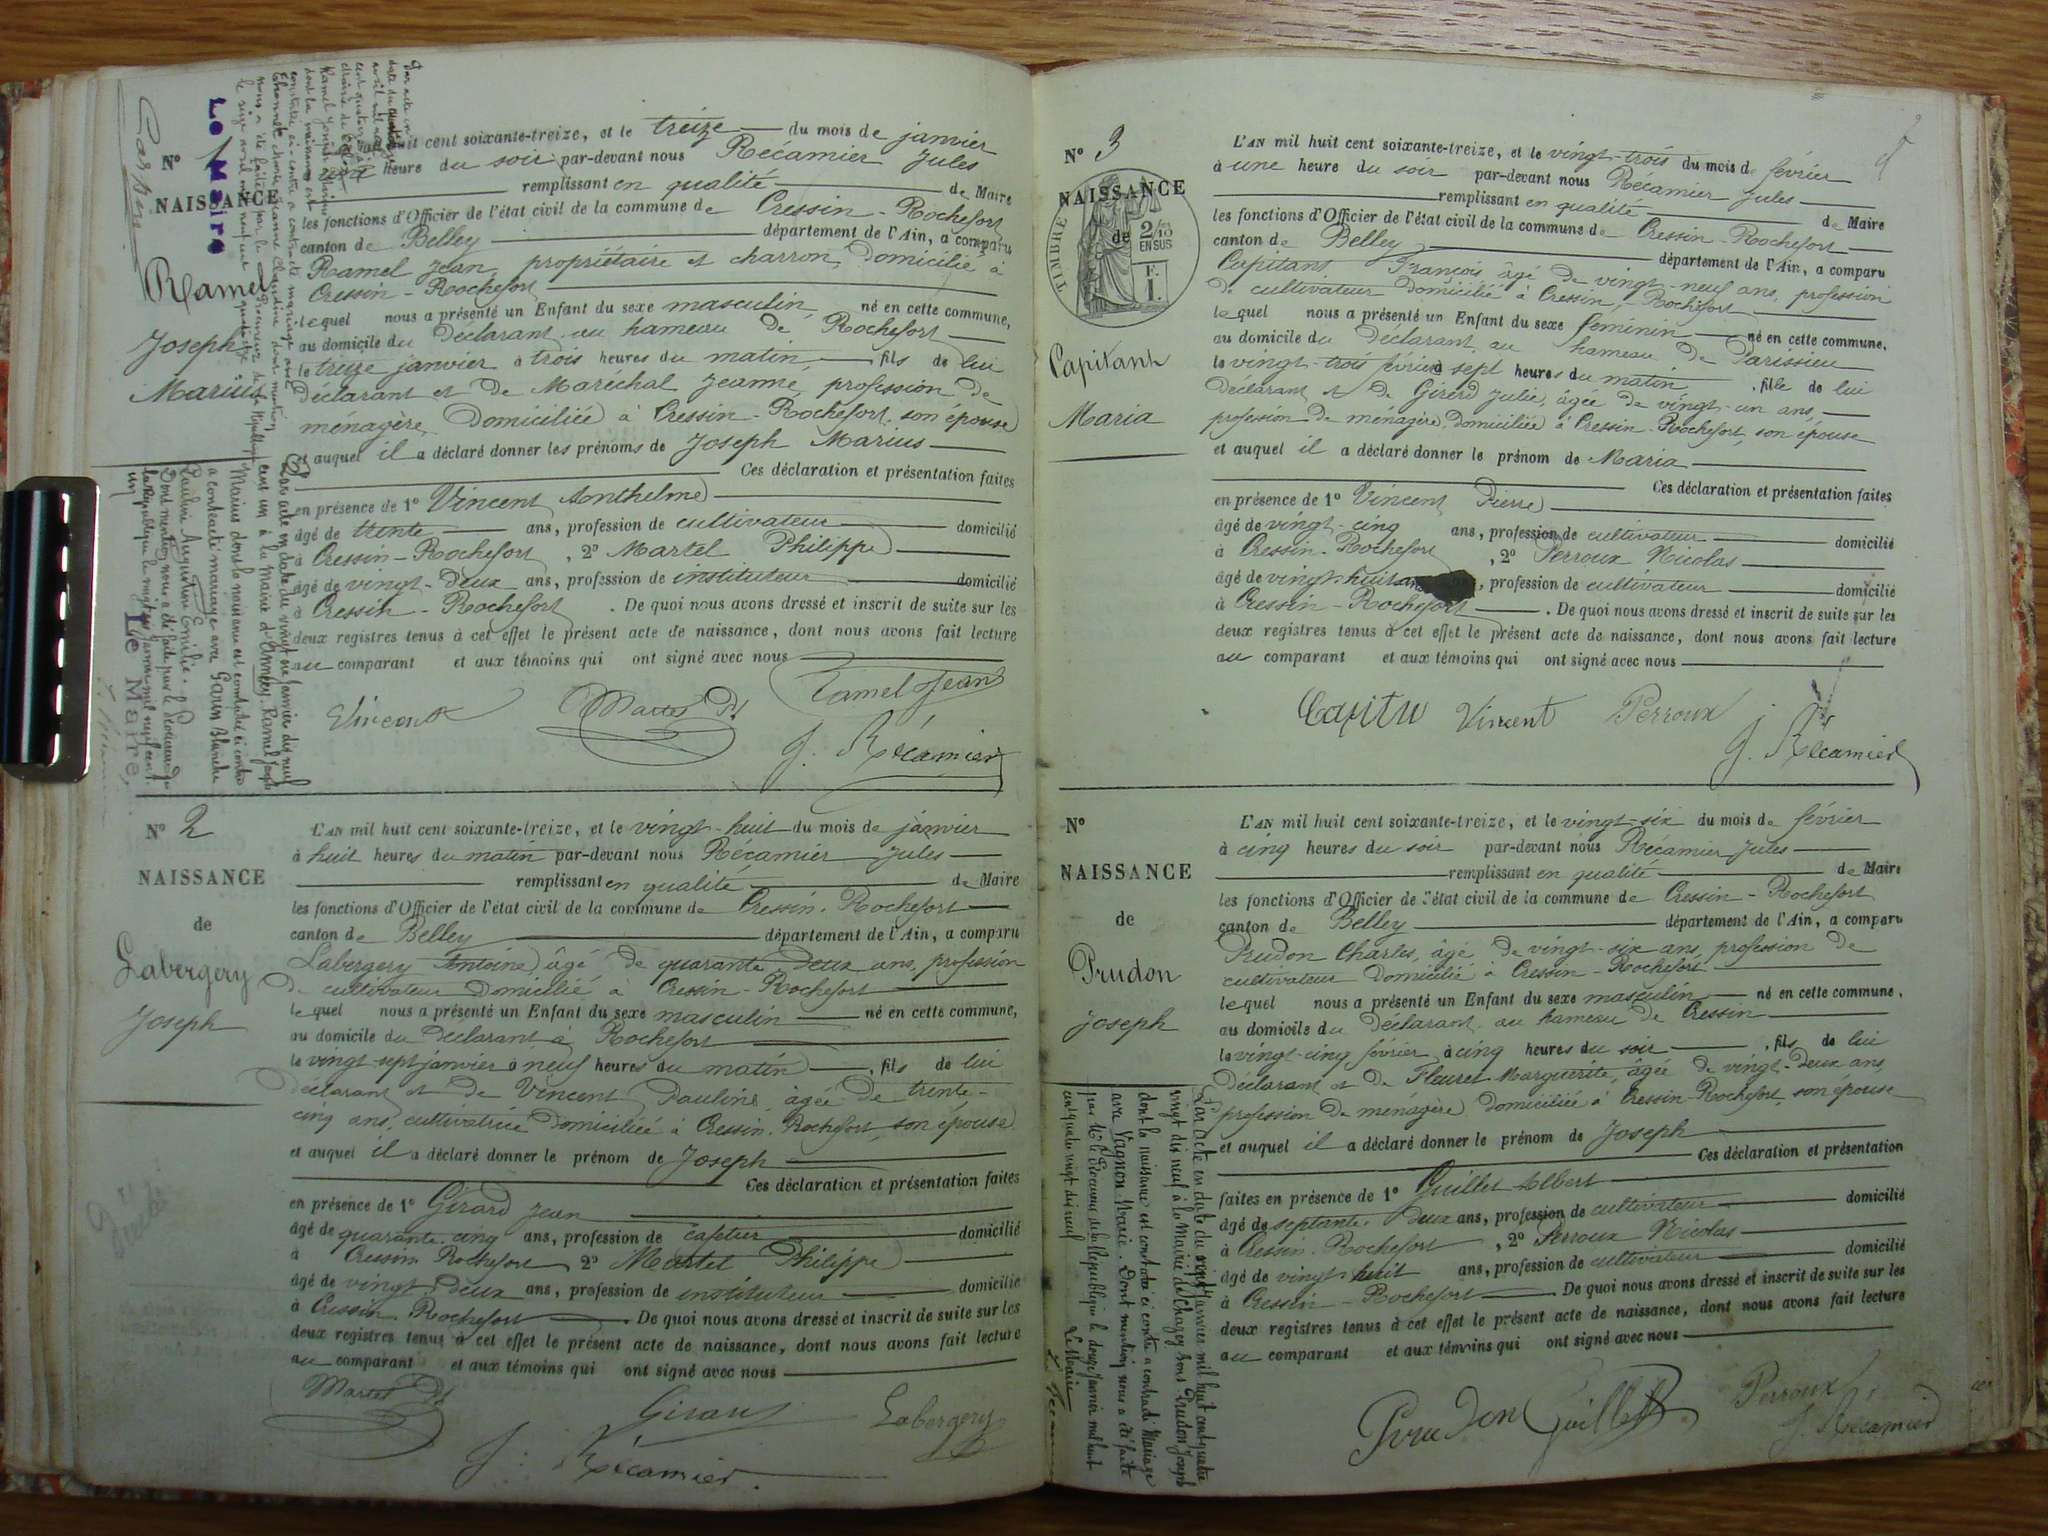 Nº 1
NAISSANCE
Ramel
Joseph
Marius
Le Maire
huit cent soixante-treize, et le treize du mois de janvier
heure du soir par-devant nous Récamier Jules
remplissant en qualité de Maire
les fonctions d'Officier de l'état civil de la commune de Cressin-Rochefort
canton de Belley département de l'Ain, a comparu
Ramel Jean, propriétaire et charron, domicilié à
Cressin-Rochefort
lequel nous a présenté un Enfant du sexe masculin né en cette commune,
au domicile du déclarant au hameau de Rochefort
le treize janvier à trois heures du matin fils de lui
déclarant et de Maréchal Jeanne, profession de
ménagère, domiciliée à Cressin-Rochefort, son épouse
et auquel il a déclaré donner les prénoms de Joseph Marius
Ces déclaration et présentation faites
en présence de 1º Vincent Anthelme
âgé de trente ans, profession de cultivateur domicilié
à Cressin-Rochefort, 2º Martel Philippe
âgé de vingt-deux ans, profession de instituteur domicilié
à Cressin-Rochefort. De quoi nous avons dressé et inscrit de suite sur les
deux registres tenus à cet effet le présent acte de naissance, dont nous avons fait lecture
au comparant et aux témoins qui ont signé avec nous
Vincent Martel Ramel Jean
J. Récamier
Par acte en date du vingt un janvier dix neuf
cent un à la Mairie d'Annecy, Ramel Joseph
Marius dont la naissance est constatée ci contre
a contracté mariage avec Gavin Blanche
Pauline Augustine Emilie.
Dont mention nous a été faite par le Procureur de
la République le vingt six janvier mil neuf cent
un
Le Maire,
Nº 2
NAISSANCE
de
Labergery
Joseph
L'AN mil huit cent soixante-treize, et le vingt-huit du mois de janvier
à huit heures du matin par-devant nous Récamier Jules
remplissant en qualité de Maire
les fonctions d'Officier de l'état civil de la commune de Cressin-Rochefort
canton de Belley département de l'Ain, a comparu
Labergery Antoine, âgé de quarante deux ans, profession
de cultivateur domicilié à Cressin-Rochefort
lequel nous a présenté un Enfant du sexe masculin né en cette commune,
au domicile du déclarant à Rochefort
le vingt-sept janvier à neuf heures du matin, fils de lui
déclarant et de Vincent Pauline âgée de trente-
cinq ans, cultivatrice domiciliée à Cressin-Rochefort, son épouse
et auquel il a déclaré donner le prénom de Joseph
Ces déclaration et présentation faites
en présence de 1º Girard Jean
âgé de quarante-cinq ans, profession de cafetier domicilié
à Cressin Rochefort 2º Martel Philippe
âgé de vingt-deux ans, profession de instituteur domicilié
à Cressin Rochefort. De quoi nous avons dressé et inscrit de suite sur les
deux registres tenus à cet effet le présent acte de naissance, dont nous avons fait lecture
au comparant et aux témoins qui ont signé avec nous
Martel Girard Labergery
J. Récamier
Nº 3
NAISSANCE
de
TIMBRE
2/10
EN SUS
F.
1.
Capitant
Maria
L'AN mil huit cent soixante-treize, et le vingt-trois du mois de février
à une heure du soir par-devant nous Récamier Jules
remplissant en qualité de Maire
les fonctions d'Officier de l'état civil de la commune de Cressin-Rochefort
canton de Belley département de l'Ain, a comparu
Capitant François âgé de vingt-neuf ans, profession
de cultivateur domicilié à Cressin-Rochefort
lequel nous a présenté un Enfant du sexe féminin né en cette commune,
au domicile du déclarant au hameau de Parissieu
le vingt-trois février à sept heures du matin, fille de lui
déclarant et de Girerd Julie, âgée de vingt-un ans,
profession de ménagère, domiciliée à Cressin-Rochefort, son épouse
et auquel il a déclaré donner le prénom de Maria
Ces déclaration et présentation faites
en présence de 1º Vincent Pierre
âgé de vingt-cinq ans, profession de cultivateur domicilié
à Cressin-Rochefort, 2º Perroux Nicolas
âgé de vingt-huit, profession de cultivateur domicilié
à Cressin-Rochefort. De quoi nous avons dressé et inscrit de suite sur les
deux registres tenus à cet effet le présent acte de naissance, dont nous avons fait lecture
au comparant et aux témoins qui ont signé avec nous
Vincent Perroux
J. Récamier
Nº
NAISSANCE
de
Prudon
Joseph
L'AN mil huit cent soixante-treize, et le vingt-six du mois de février
à cinq heures du soir par-devant nous Récamier Jules
remplissant en qualité de Maire
les fonctions d'Officier de l'état civil de la commune de Cressin-Rochefort
canton de Belley département de l'Ain, a comparu
Prudon Charles, âgé de vingt-six ans, profession de
cultivateur domicilié à Cressin-Rochefort
lequel nous a présenté un Enfant du sexe masculin né en cette commune,
au domicile du déclarant au hameau de Cressin
le vingt-cinq février à cinq heures du soir, fils de lui
déclarant et de Fleuret Marguerite, âgée de vingt-deux ans
profession de ménagère domiciliée à Cressin-Rochefort son épouse
et auquel il a déclaré donner le prénom de Joseph
Ces déclaration et présentation
faites en présence de 1º Guillet Albert
âgé de septante-deux ans, profession de cultivateur domicilié
à Cressin-Rochefort, 2º Perroux Nicolas
âgé de vingt-huit ans, profession de cultivateur domicilié
à Cressin-Rochefort. De quoi nous avons dressé et inscrit de suite sur les
deux registres tenus à cet effet le présent acte de naissance, dont nous avons fait lecture
au comparant et aux témoins qui ont signé avec nous
Prudon Guillet Perroux
J. Récamier
Par acte en date du janvier mil huit cent quatre
vingt dix neuf à la Mairie de Chazey Bons Prudon Joseph
dont la naissance est constatée ci contre a contracté mariage
avec Vagnon Marie. Dont mention nous a été faite
par Mr le Procureur de la République le douze janvier mil huit
cent quatre vingt dix neuf
Le Maire